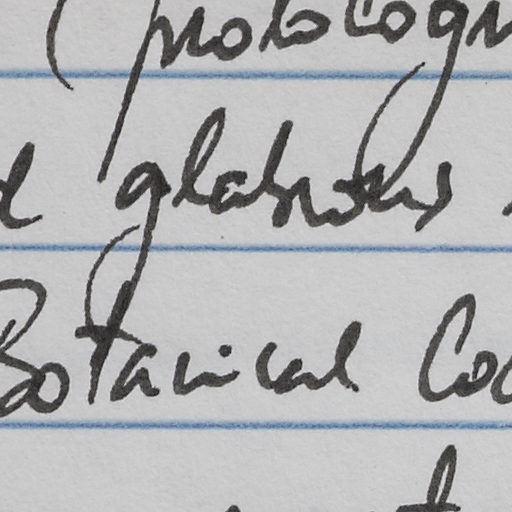 (protologu
glabrous
Botanical Co